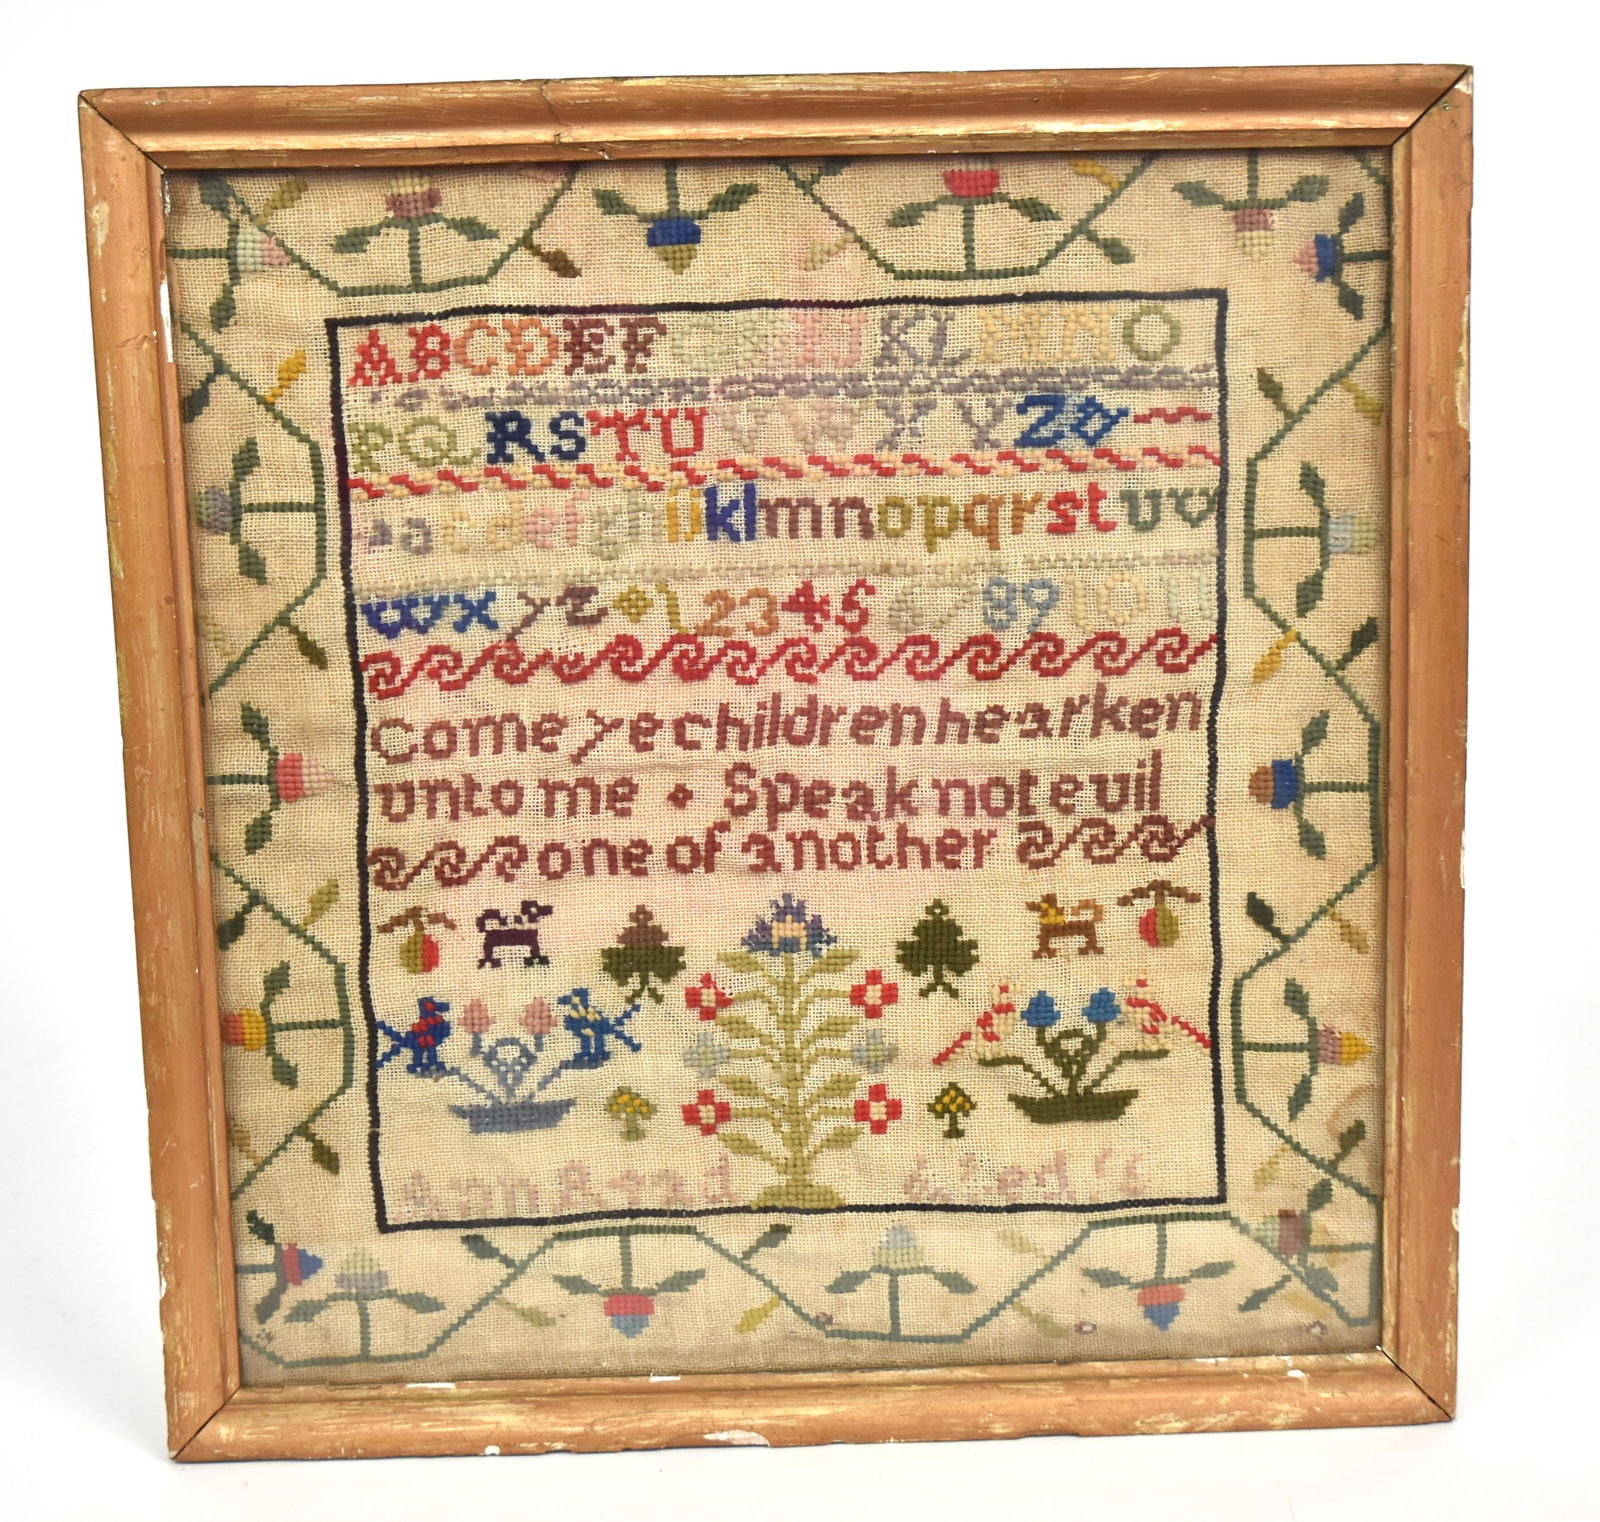 ABCDEFGHIJKLMNO
PQRSTUVWXYZ&
aacdefghijklmnopqrstuv
wxyz 1234567891011
Come ye children hearken
unto me Speak not evil
one of another
Ann